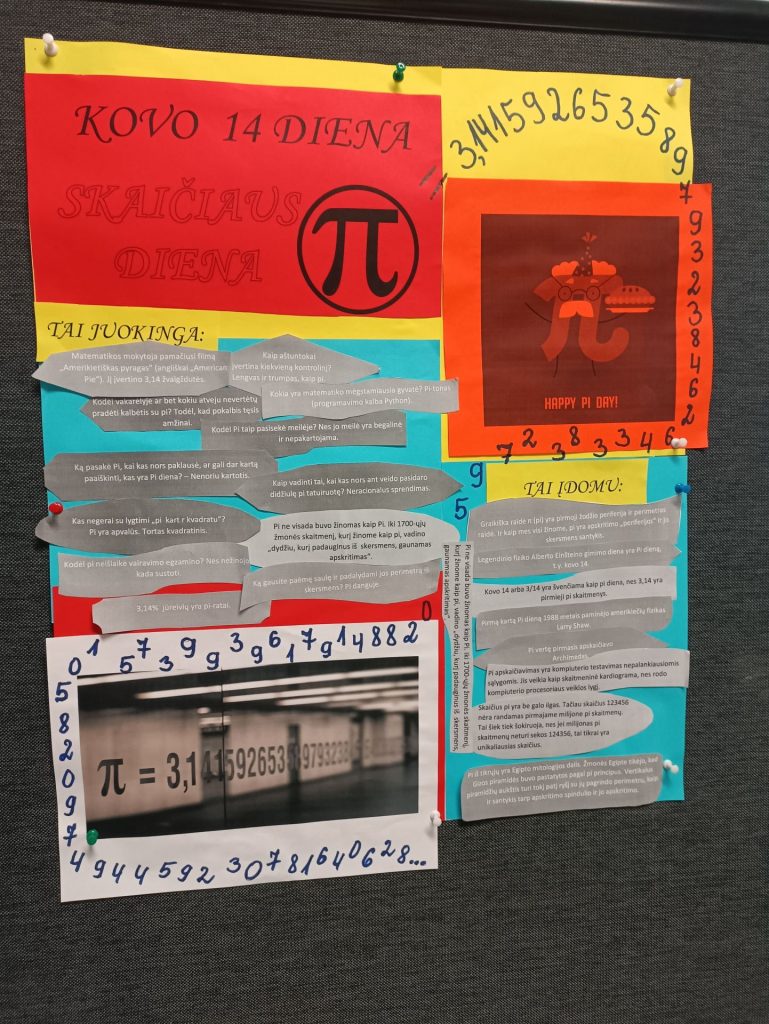 KOVO 14 DIENA
SKAIČIAUS
DIENA
π
3,14159265358979323846264338327950
HAPPY PI DAY!
TAI JUOKINGA:
Matematikos mokytoja pamačiusi filmą
„Amerikietiškas pyragas" (angliškai „American
Pie"). Jį įvertino 3,14 žvaigždutės.
Kaip aštuntokai
įvertina kiekvieną kontrolinį?
Lengvas ir trumpas, kaip pi.
Kodėl vakarėlyje ar bet kokiu atveju nevertėtų
pradėti kalbėtis su pi? Todėl, kad pokalbis tęsis
amžinai.
Kokia yra matematiko mėgstamiausia gyvatė? Pi-tonas
(programavimo kalba Python).
Kodėl Pi taip pasisekė meilėje? Nes jo meilė yra begalinė
ir nepakartojama.
Ką pasakė Pi, kai kas nors paklausė, ar gali dar kartą
paaiškinti, kas yra Pi diena? – Nenoriu kartotis.
Kaip vadinti tai, kai kas nors ant veido pasidaro
didžiulę pi tatuiruotę? Neracionalus sprendimas.
Kas negerai su lygtimi „pi kart r kvadratu"?
Pi yra apvalus. Tortas kvadratinis.
Pi ne visada buvo žinomas kaip Pi. Iki 1700-ųjų
žmonės skaitmenį, kurį žinome kaip pi, vadino
„dydžiu, kurį padauginus iš skersmens, gaunamas
apskritimas".
Kodėl pi neišlaikė vairavimo egzamino? Nes nežinojo
kada sustoti.
Ką gausite paėmę saulę ir padalydami jos perimetrą iš
skersmens? Pi danguje.
3,14% jūreivių yra pi-ratai.
TAI ĮDOMU:
Graikiška raidė π (pi) yra pirmoji žodžio periferija ir perimetras
raidė. Ir kaip mes visi žinome, pi yra apskritimo „periferijos" ir jo
skersmens santykis.
Legendinio fiziko Alberto Einšteino gimimo diena yra Pi dieną,
t.y. kovo 14.
Kovo 14 arba 3/14 yra švenčiama kaip pi diena, nes 3,14 yra
pirmieji pi skaitmenys.
Pirmą kartą Pi dieną 1988 metais paminėjo amerikiečių fizikas
Larry Shaw.
Pi vertę pirmasis apskaičiavo
Archimedas.
Pi apskaičiavimas yra kompiuterio testavimas nepalankiausiomis
sąlygomis. Jis veikia kaip skaitmeninė kardiograma, nes rodo
kompiuterio procesoriaus veiklos lygį.
Skaičius pi yra be galo ilgas. Tačiau skaičius 123456
nėra randamas pirmajame milijone pi skaitmenų.
Tai šiek tiek šokiruoja, nes jei milijonas pi
skaitmenų neturi sekos 124356, tai tikrai yra
unikaliausias skaičius.
Pi iš tikrųjų yra Egipto mitologijos dalis. Žmonės Egipte tikėjo, kad
Gizos piramidės buvo pastatytos pagal pi principus. Vertikalus
piramidžių aukštis turi tokį patį ryšį su jų pagrindo perimetru, kaip
ir santykis tarp apskritimo spindulio ir jo apskritimo.
Pi ne visada buvo žinomas kaip Pi. Iki 1700-ųjų žmonės skaitmenį,
kurį žinome kaip pi, vadino „dydžiu, kurį padauginus iš skersmens,
gaunamas apskritimas".
288419716939937510
582097
π = 3,14159265358979323846
494459230781640628...